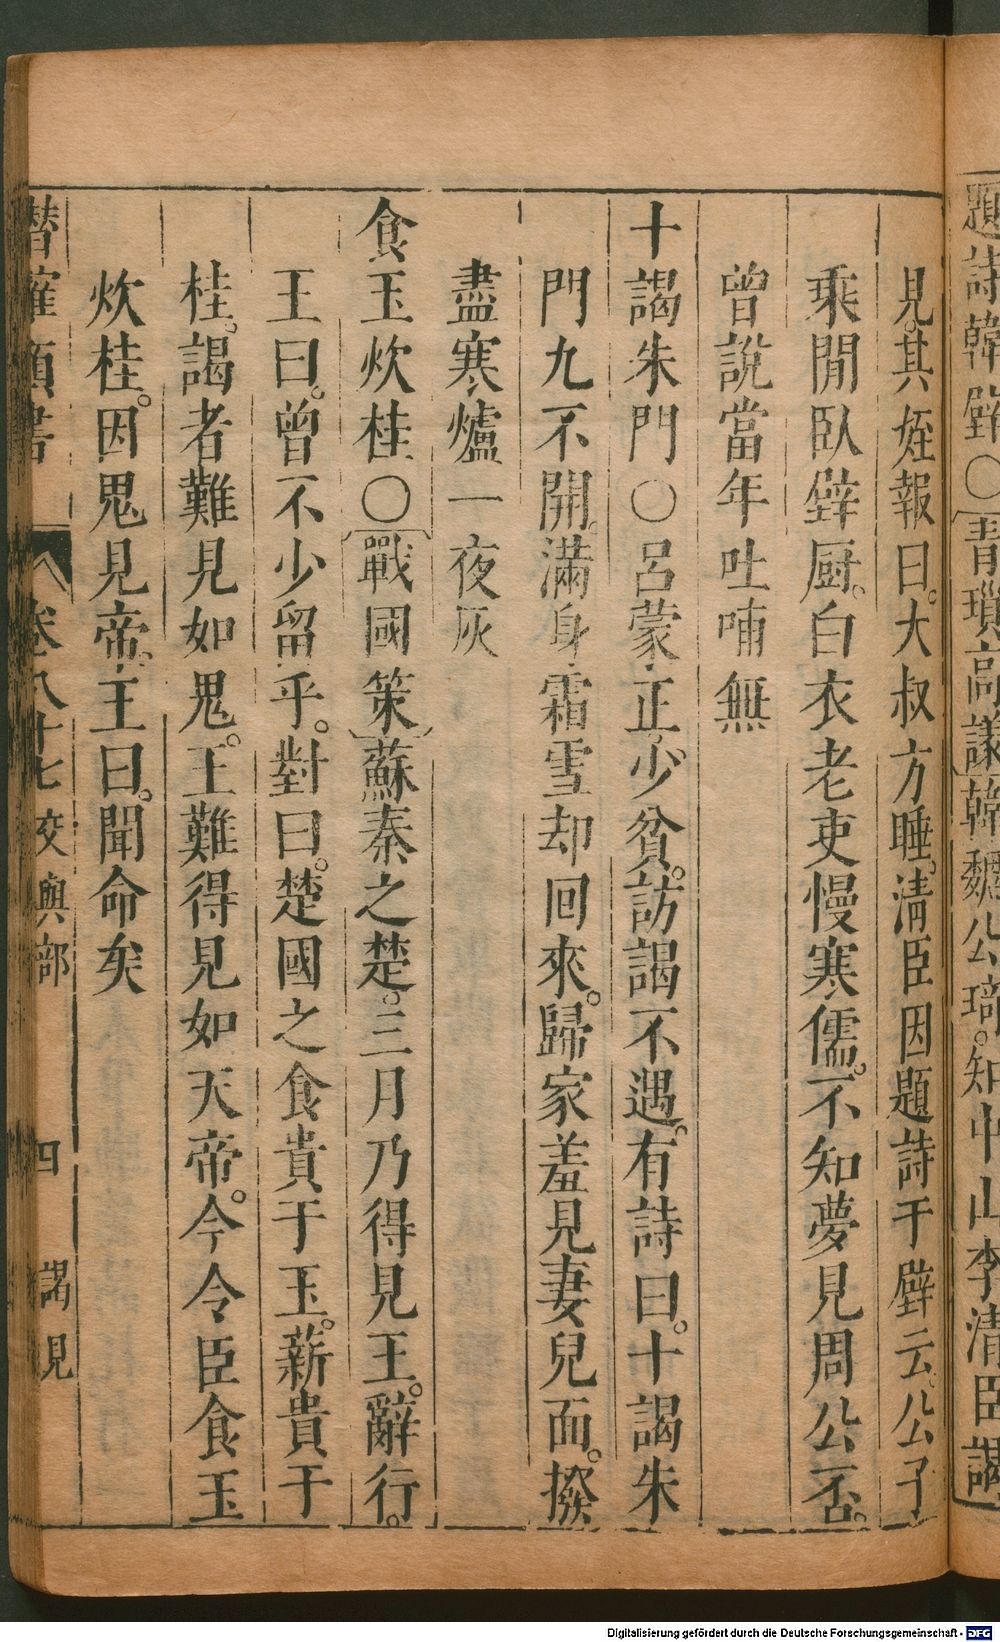 題詩韓壁○青瑣高議韓魏公琦。知中山李清臣謁
見。其姪報曰。大叔方睡。清臣因題詩于壁云。公子
乘閒臥壁厨。白衣老吏慢寒儒。不知夢見周公否。
曾說當年吐哺無
十謁朱門○呂蒙正少貧。訪謁不遇。有詩曰。十謁朱
門九不開。滿身霜雪却回來。歸家羞見妻兒面。撥
盡寒爐一夜灰
食玉炊桂○戰國策蘇秦之楚。三月乃得見王。辭行。
王曰。曾不少留乎。對曰。楚國之食貴于玉。薪貴于
桂。謁者難見如鬼。王難得見如天帝。今令臣食玉
炊桂。因鬼見帝。王曰。聞命矣
潛確類書 卷八十七交與部 四 謁見
Digitalisierung gefördert durch die Deutsche Forschungsgemeinschaft - DFG